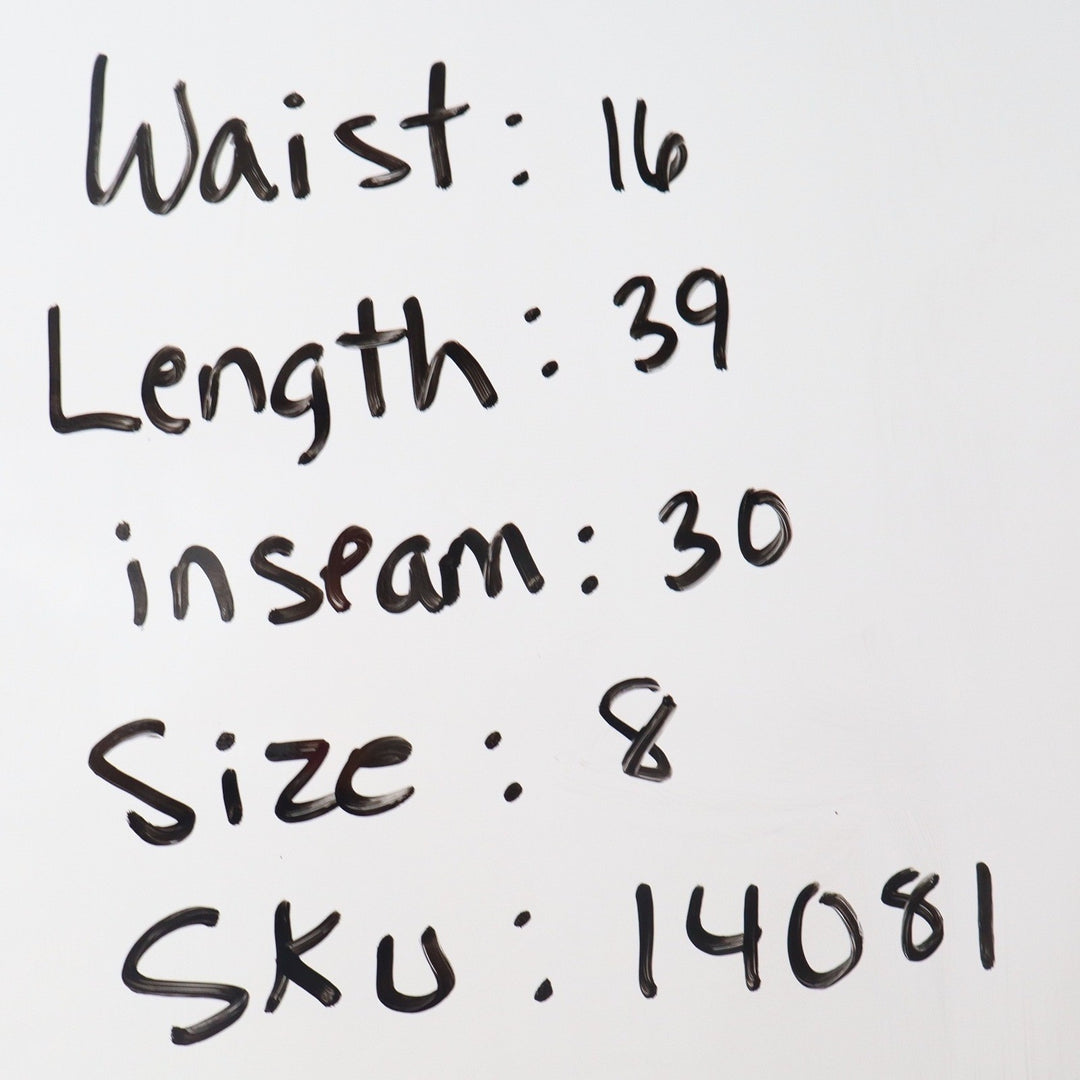 Waist: 16
Length: 39
inseam: 30
Size: 8
SKU: 14081